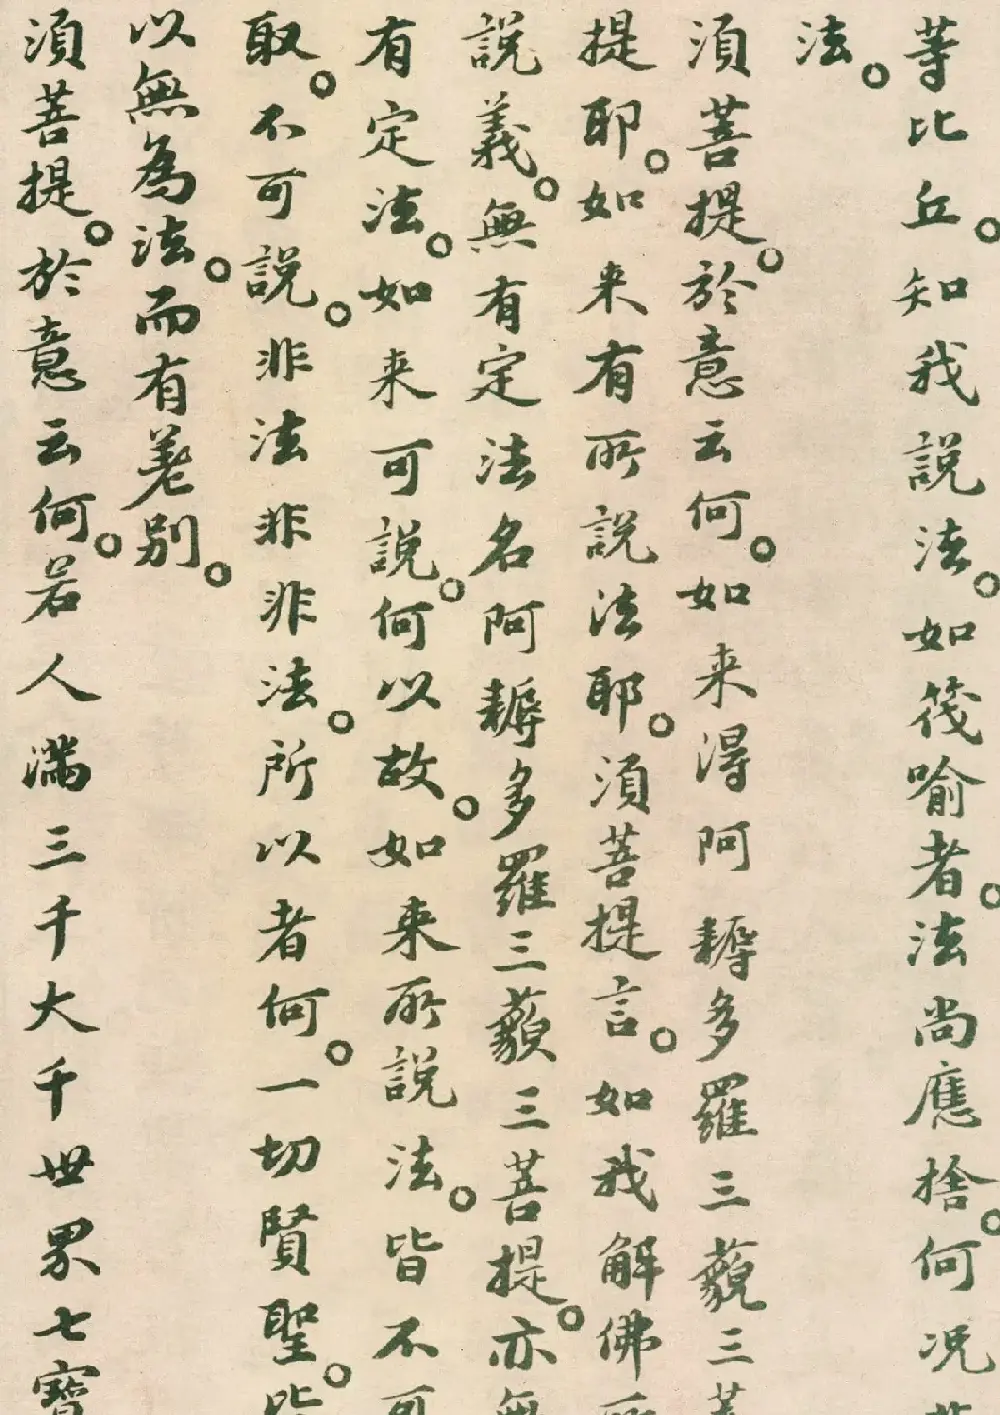 等比丘。知我說法。如筏喻者。法尚應捨。何況
法。
須菩提。於意云何。如来得阿耨多羅三藐三菩
提耶。如来有所說法耶。須菩提言。如我解佛所
說義。無有定法名阿耨多羅三藐三菩提。亦無
有定法。如来可說。何以故。如来所說法。皆不可
取。不可說。非法非非法。所以者何。一切賢聖。皆
以無為法。而有差别。
須菩提。於意云何。若人滿三千大千世界七寶